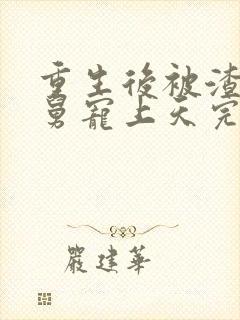 重生後被渣
舅寵上天完
嚴建華